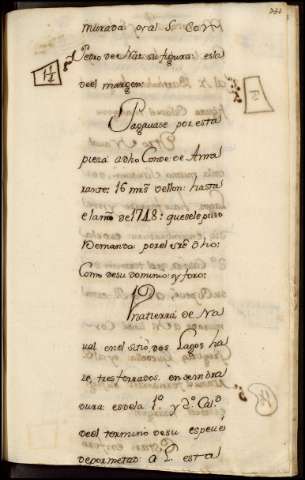 murada por al S. Con
Pedro de Naz. su figura: esta
deel margen:
Pagauase por esta
pieza adho Conde de Ama
rante: 16 mrs. de llon: hasta
el año de 1748: que se le puso
Demanda: por el sre. dho:
Como desu dominio y foro:
Vna tierra de Na
ual en el sitio dos Lagos ha
ze, tres ferrados en sembra
dura: es de la 1º. y 2º. Cald.
deel termino de su especie
de por metad: a L. esta